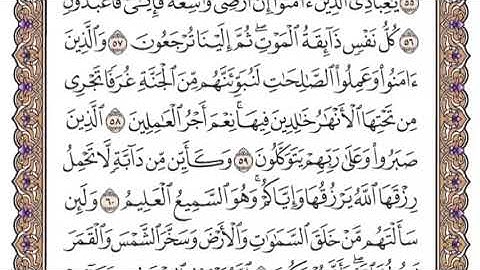 ٥٥ يَٰعِبَادِيَ ٱلَّذِينَ ءَامَنُوٓا۟ إِنَّ أَرْضِى وَٰسِعَةٌ فَإِيَّٰىَ فَٱعْبُدُونِ
٥٦ كُلُّ نَفْسٍ ذَآئِقَةُ ٱلْمَوْتِ ۖ ثُمَّ إِلَيْنَا تُرْجَعُونَ ٥٧ وَٱلَّذِينَ
ءَامَنُوا۟ وَعَمِلُوا۟ ٱلصَّٰلِحَٰتِ لَنُبَوِّئَنَّهُم مِّنَ ٱلْجَنَّةِ غُرَفًا تَجْرِى
مِن تَحْتِهَا ٱلْأَنْهَٰرُ خَٰلِدِينَ فِيهَا ۚ نِعْمَ أَجْرُ ٱلْعَٰمِلِينَ ٥٨ ٱلَّذِينَ
صَبَرُوا۟ وَعَلَىٰ رَبِّهِمْ يَتَوَكَّلُونَ ٥٩ وَكَأَيِّن مِّن دَآبَّةٍ لَّا تَحْمِلُ
رِزْقَهَا ٱللَّهُ يَرْزُقُهَا وَإِيَّاكُمْ ۚ وَهُوَ ٱلسَّمِيعُ ٱلْعَلِيمُ ٦٠ وَلَئِن
سَأَلْتَهُم مَّنْ خَلَقَ ٱلسَّمَٰوَٰتِ وَٱلْأَرْضَ وَسَخَّرَ ٱلشَّمْسَ وَٱلْقَمَرَ